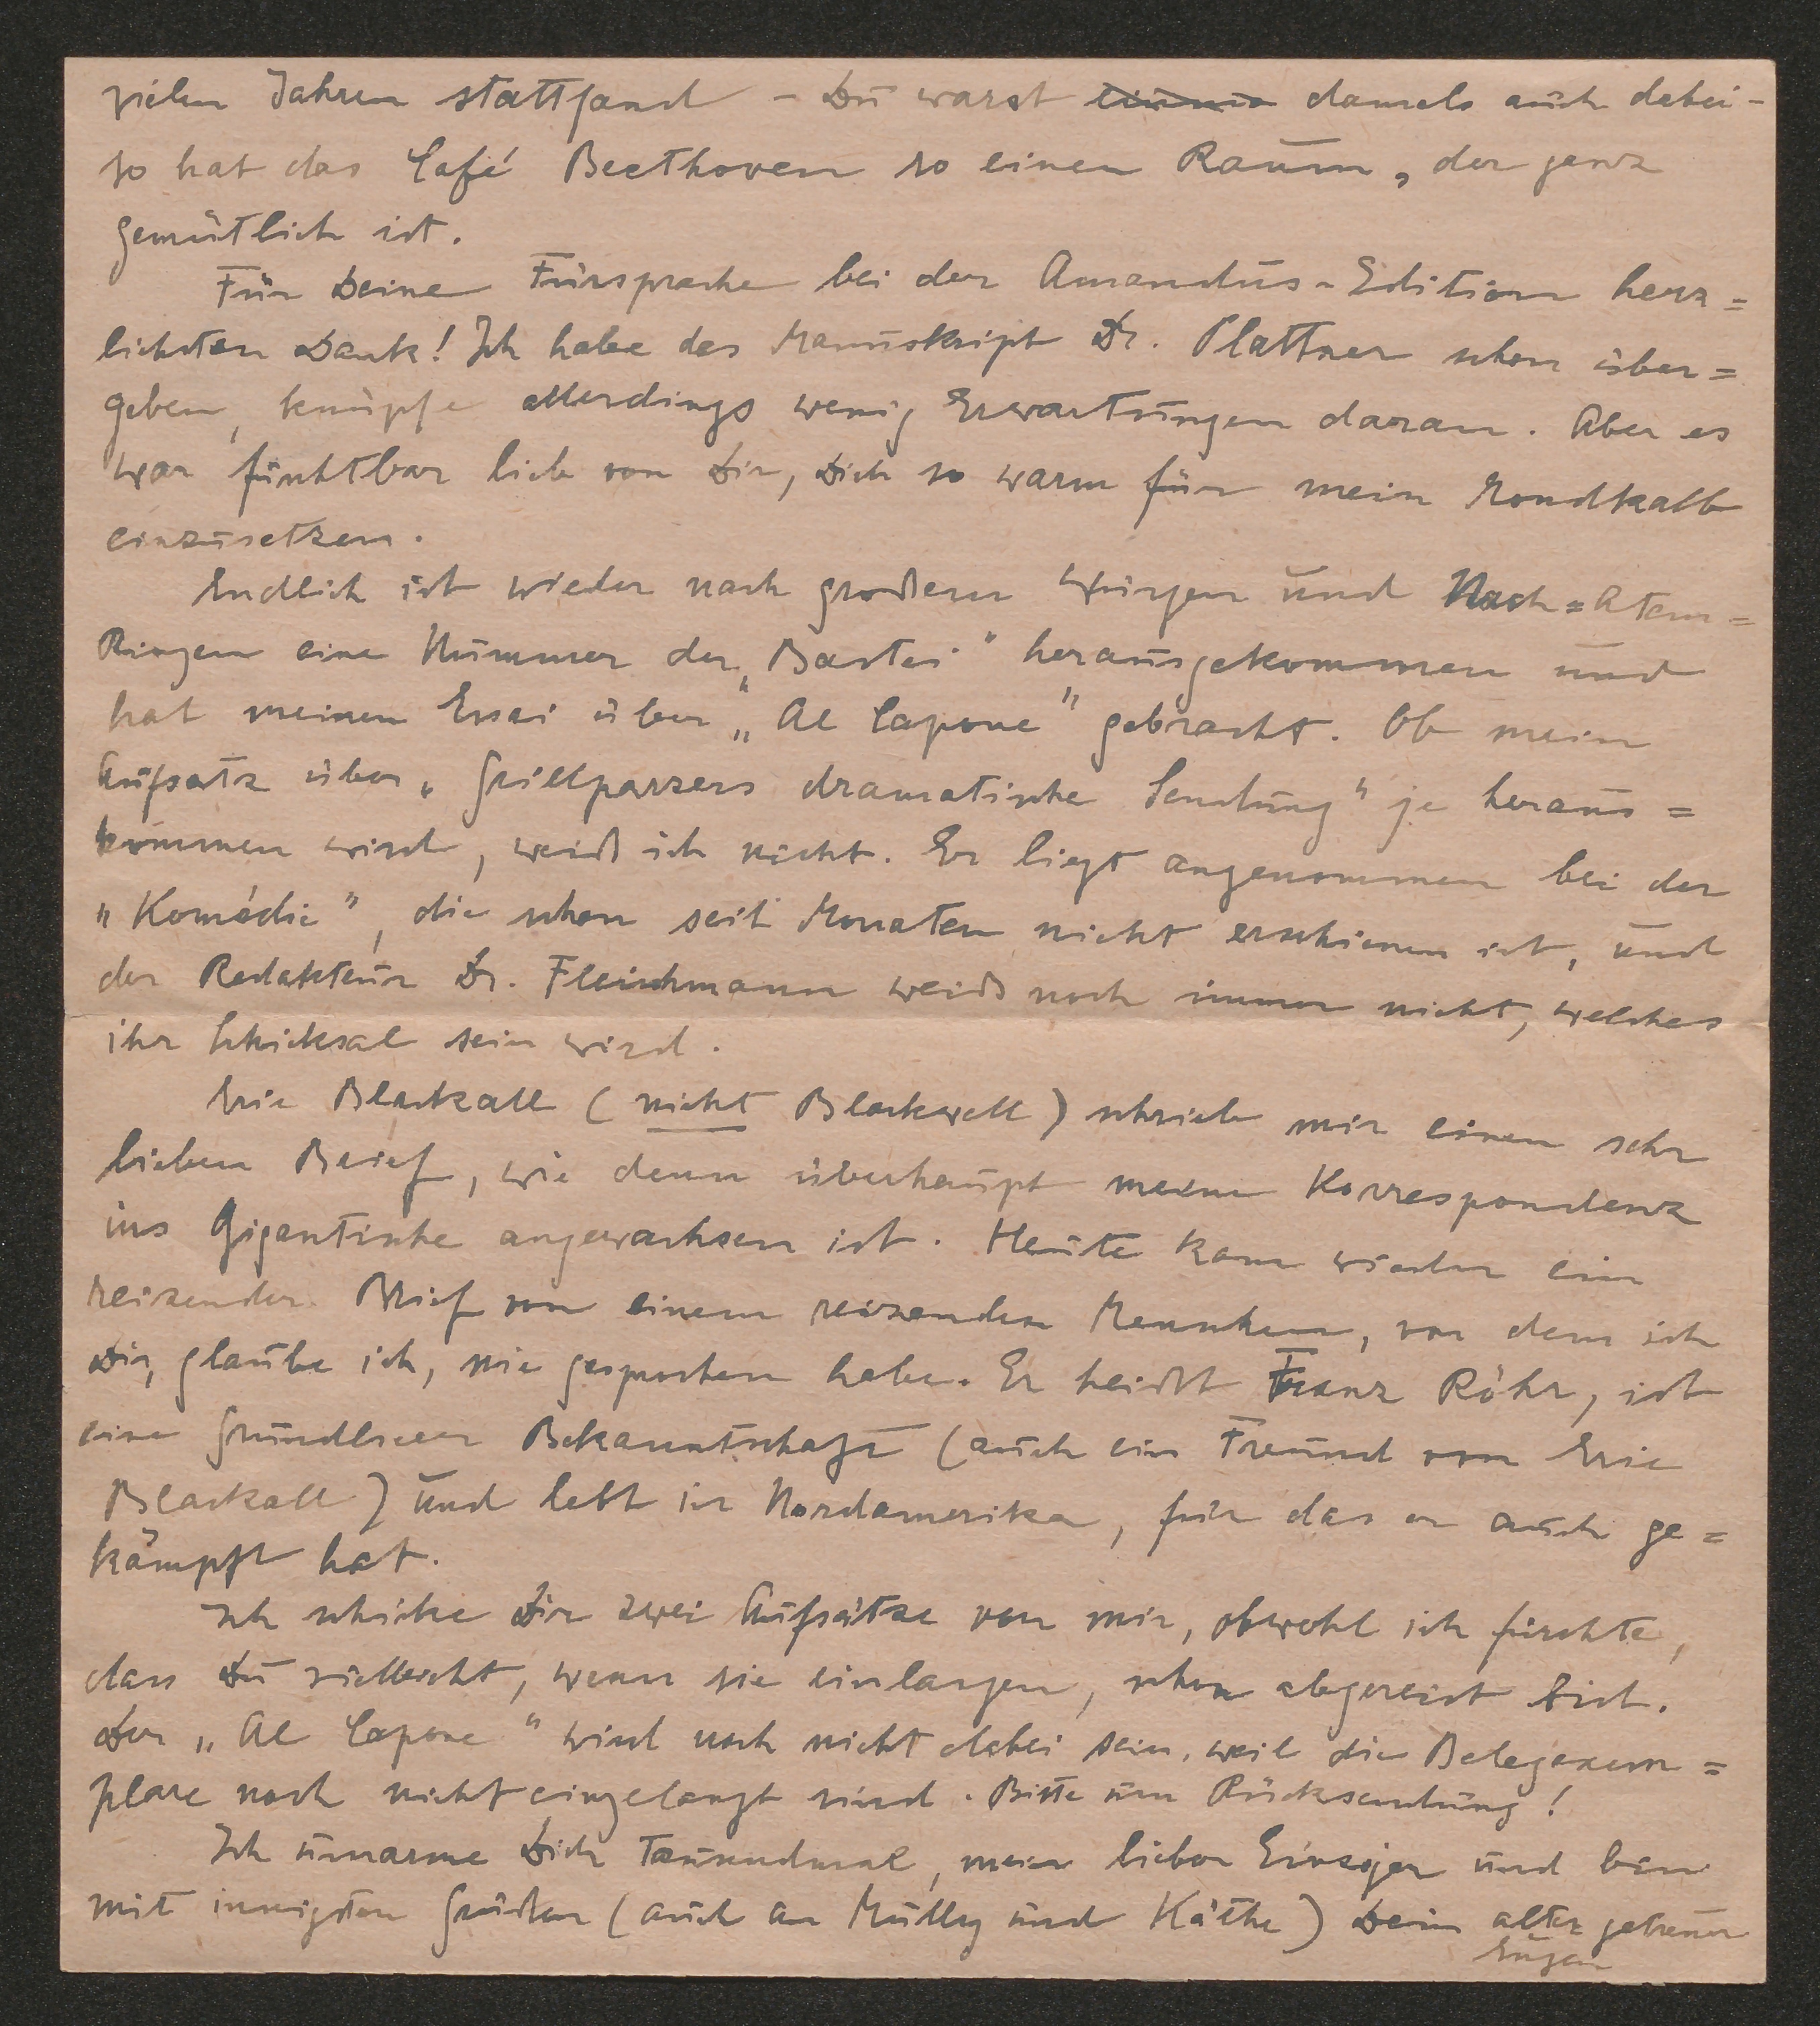 vielen Jahren stattfand - Du warst damals auch dabei -
so hat das Café Beethoven so einen Raum, der ganz
gemütlich ist.
Für Deine Fürsprache bei der Amandus-Edition herz=
lichsten Dank! Ich habe das Manuskript Dr. Plattner schon über=
geben, knüpfe allerdings wenig Erwartungen daran. Aber es
war furchtbar lieb von Dir, Dich so warm für mein Mondkalb
einzusetzen.
Endlich ist wieder nach großem Würgen und Nach=Atem=
Ringen eine Nummer der „Bastei" herausgekommen und
hat meinen Essai über „Al Capone" gebracht. Ob mein
Aufsatz über „Grillparzers dramatische Sendung" je heraus=
kommen wird, weiß ich nicht. Er liegt angenommen bei der
„Komödie", die schon seit Monaten nicht erschienen ist, und
der Redakteur Dr. Fleischmann weiß noch immer nicht, welches
ihr Schicksal sein wird.
Eric Blackall (nicht Blackwell) schrieb mir einen sehr
lieben Brief, wie denn überhaupt meine Korrespondenz
ins Gigantische angewachsen ist. Heute kam wieder ein
reizender Brief von einem reizenden Menschen, von dem ich
Dir, glaube ich, nie gesprochen habe. Er heißt Franz Röhr, ist
eine Grundlseeer Bekanntschaft (auch ein Freund von Eric
Blackall) und lebt in Nordamerika, für das er auch ge=
kämpft hat.
Ich schicke Dir zwei Aufsätze von mir, obwohl ich fürchte,
dass Du vielleicht, wenn sie einlangen, schon abgereist bist.
Der „Al Capone" wird noch nicht dabei sein, weil die Belegexem=
plare noch nicht eingelangt sind. Bitte um Rücksendung!
Ich umarme Dich tausendmal, mein lieber Einziger und bin
mit innigsten Grüßen (auch an Mully und Käthe) Dein alter getreuer
Eugen